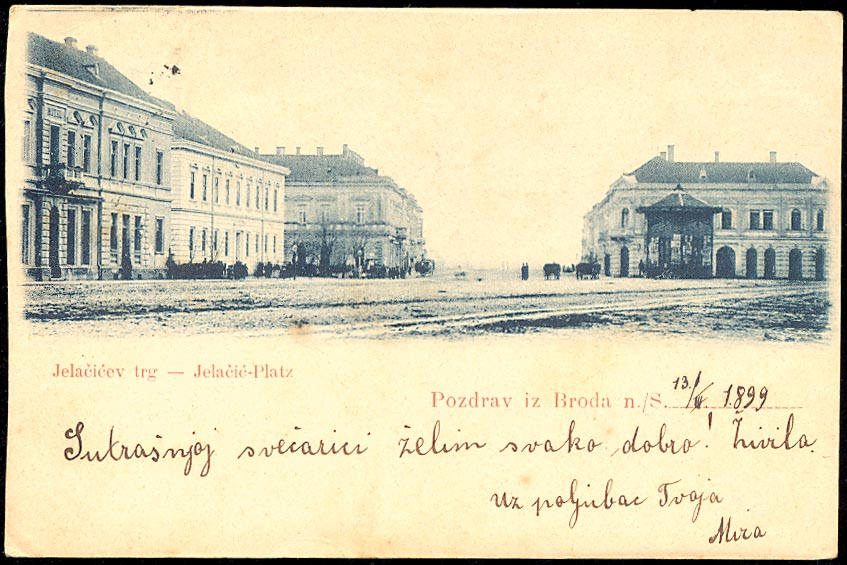 Jelačićev trg — Jelačić-Platz
Pozdrav iz Broda n./S. 13./ 1899
Sutrašnjoj svečarici želim svako dobro! Živila
Uz poljubac Tvoja
Mira